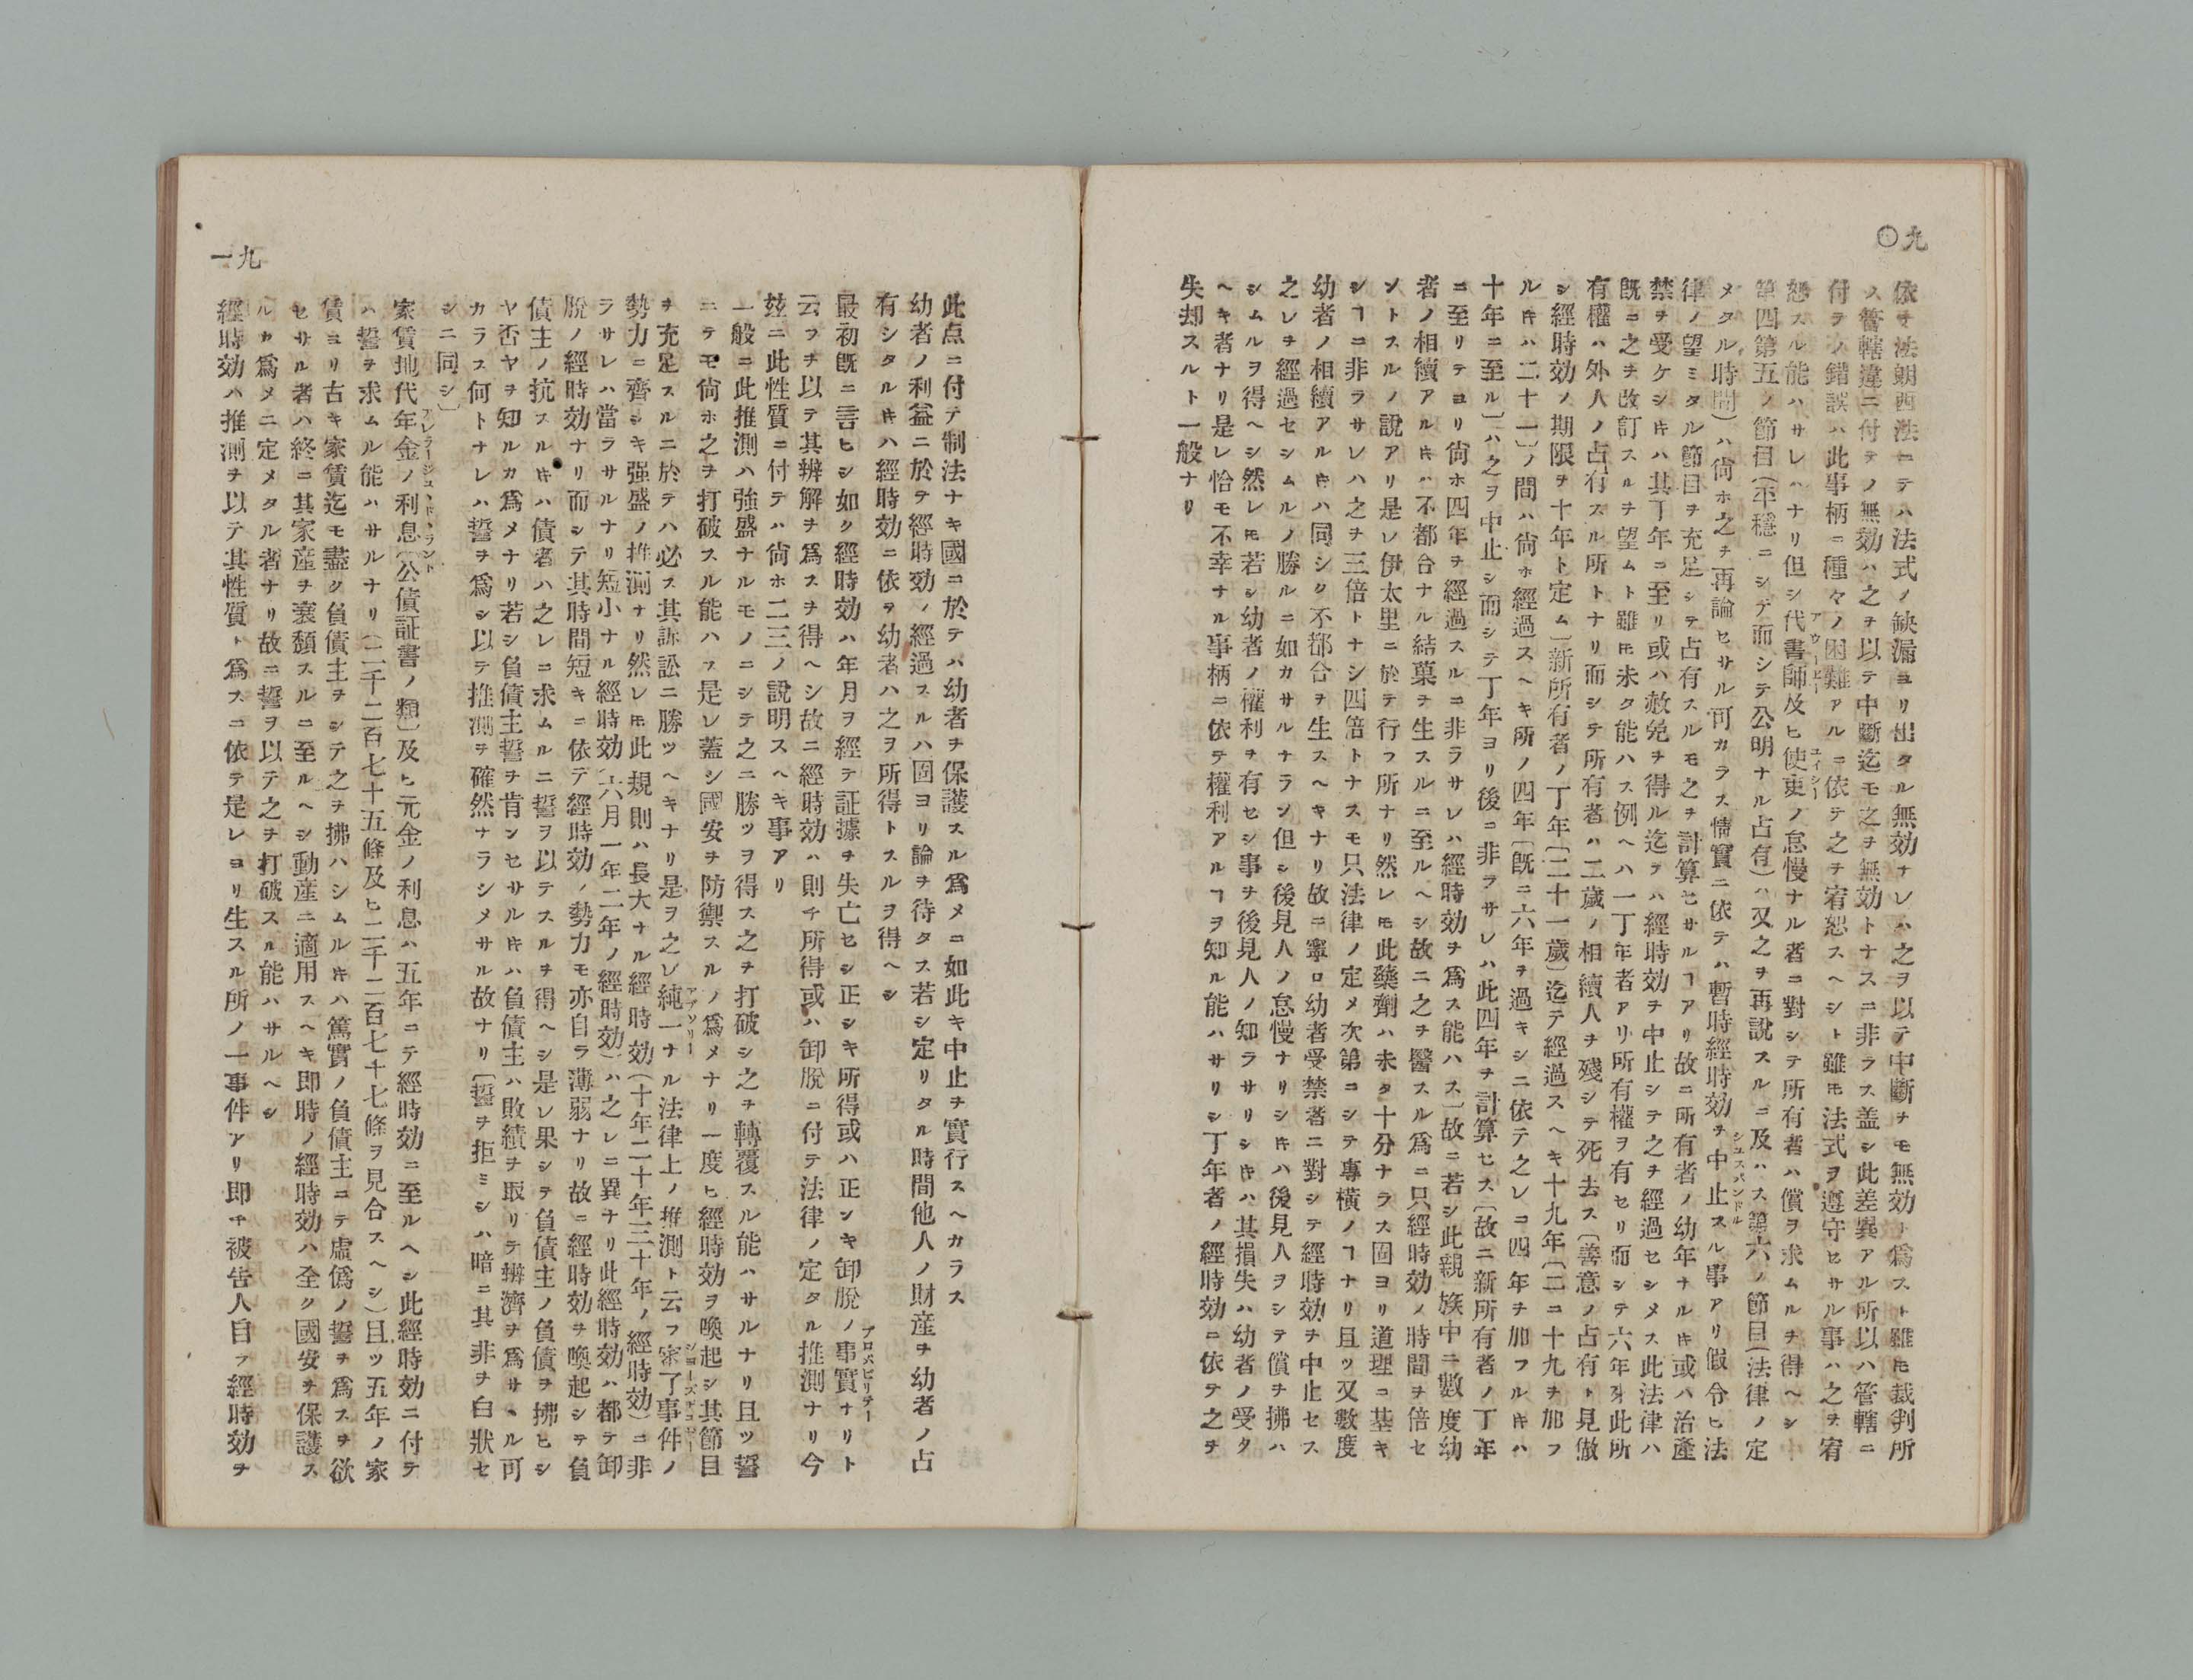 九〇
依テ法朗西法ニテハ法式ノ缺漏ヨリ出タル無効ナレハ之ヲ以テ中斷チモ無効ト爲スト雖𪜈裁判所
ノ管轄違ニ付テノ無効ハ之ヲ以テ中斷迄モ之ヲ無効トナスニ非ラス盖シ此差異アル所以ハ管轄ニ
付テノ錯誤ハ此事柄ニ種々ノ困難アルニ依テ之ヲ宥恕スヘシト雖𪜈法式ヲ遵守セサル事ハ之ヲ宥
恕スル能ハサレハナリ但シ代書師及ヒ使吏ノ怠慢ナル者ニ對シテ所有者ハ償ヲ求ムルヲ得ヘシ
アウーエー
ユイシー
第四第五ノ節目(平穩ニシテ而シテ公明ナル占有)ハ又之ヲ再說スルニ及ハス第六ノ節目(法律ノ定
メタル時間)ハ尙ホ之ヲ再論セサル可カラス情實ニ依テハ暫時經時効ヲ中止スル事アリ假令ヒ法
シユスパンドル
律ノ望ミタル節目ヲ充足シテ占有スルモ之ヲ計算セサルヿアリ故ニ所有者ノ幼年ナル𪜈或ハ治產
禁ヲ受ケシ𪜈ハ其丁年ニ至リ或ハ赦免ヲ得ル迄テハ經時効ヲ中止シテ之ヲ經過セシメス此法律ハ
既ニ之ヲ改訂スルヲ望ムト雖𪜈未タ能ハス例ヘハ一丁年者アリ所有權ヲ有セリ而シテ六年間此所
有權ハ外人ノ占有スル所トナリ而シテ所有者ハ二歲ノ相續人ヲ殘シテ死去ス〔善意ノ占有ト見傚
シ經時効ノ期限ヲ十年ト定ム〕新所有者ノ丁年〔二十一歲〕迄テ經過スヘキ十九年〔二ニ十九ヲ加フ
ル𪜈ハ二十一〕ノ間ハ尙ホ經過スヘキ所ノ四年〔既ニ六年ヲ過キシニ依テ之レニ四年ヲ加フル𪜈ハ
十年ニ至ル〕ハ之ヲ中止シ而シテ丁年ヨリ後ニ非ラサレハ此四年ヲ計算セス〔故ニ新所有者ノ丁年
ニ至リテヨリ尙ホ四年ヲ經過スルニ非ラサレハ經時効ヲ爲ス能ハス〕故ニ若シ此親族中ニ數度幼
者ノ相續アル𪜈ハ不都合ナル結菓ヲ生スルニ至ルヘシ故ニ之ヲ醫スル爲ニ只經時効ノ時間ヲ倍セ
ントスルノ說アリ是レ伊太里ニ於テ行フ所ナリ然レ𪜈此藥劑ハ未タ十分ナラス固ヨリ道理ニ基キ
シヿニ非ラサレハ之ヲ三倍トナシ四倍トナスモ只法律ノ定メ次第ニシテ專橫ノヿナリ且ツ又數度
幼者ノ相續アル𪜈ハ同シク不都合ヲ生スヘキナリ故ニ寧ロ幼者受禁者ニ對シテ經時効ヲ中止セス
之レヲ經過セシムルノ勝ルニ如カサルナラン但シ後見人ノ怠慢ナリシ𪜈ハ後見人ヲシテ償ヲ拂ハ
シムルヲ得ヘシ然レ𪜈若シ幼者ノ權利ヲ有セシ事ヲ後見人ノ知ラサリシ𪜈ハ其損失ハ幼者ノ受タ
ヘキ者ナリ是レ恰モ不幸ナル事柄ニ依テ權利アルヿヲ知ル能ハサリシ丁年者ノ經時効ニ依テ之ヲ
失却スルト一般ナリ
九一
此点ニ付テ制法ナキ國ニ於テハ幼者ヲ保護スル爲メニ如此キ中止ヲ實行スヘカラス
幼者ノ利益ニ於テ經時効ノ經過スルハ固ヨリ論ヲ待タス若シ定リタル時間他人ノ財産ヲ幼者ノ占
有シタル𪜈ハ經時効ニ依テ幼者ハ之ヲ所得トスルヲ得ヘシ
最初既ニ言ヒシ如ク經時効ハ年月ヲ經テ証據ヲ失亡セシ正シキ所得或ハ正シキ卸脫ノ事實ナリト
プロバビリテー
云フヲ以テ其辨解ヲ爲スヲ得ヘシ故ニ經時効ハ則チ所得或ハ卸脫ニ付テ法律ノ定タル推測ナリ今
玆ニ此性質ニ付テハ尙ホ二三ノ說明スヘキ事アリ
一般ニ此推測ハ强盛ナルモノニシテ之ニ勝ツヲ得ス之ヲ打破シ之ヲ轉覆スル能ハサルナリ且ツ誓
ニテモ尙ホ之ヲ打破スル能ハス是レ蓋シ國安ヲ防禦スルノ爲メナリ一度ヒ經時効ヲ喚起シ其節目
ヲ充足スルニ於テハ必ス其訴訟ニ勝ツヘキナリ是ヲ之レ純一ナル法律上ノ推測ト云フ宋了事件ノ
アブソリー
シヨーズジユジー
勢力ニ齊シキ强盛ノ推測ナリ然レ𪜈此規則ハ長大ナル經時効(十年二十年三十年ノ經時効)ニ非
ラサレハ當ラサルナリ短小ナル經時効(六月一年二年ノ經時効)ハ之レニ異ナリ此經時効ハ都テ卸
脫ノ經時効ナリ而シテ其時間短キニ依テ經時効ノ勢力モ亦自ラ薄弱ナリ故ニ經時効ヲ喚起シテ負
債主ノ抗スル𪜈ハ債者ハ之レニ求ムルニ誓ヲ以テスルヲ得ヘシ是レ果シテ負債主ノ負債ヲ拂ヒシ
ヤ否ヤヲ知ルカ爲メナリ若シ負債主誓ヲ肯ンセサル𪜈ハ負債主ハ敗績ヲ取リテ辨濟ヲ爲サヽル可
カラス何トナレハ誓ヲ爲シ以テ推測ヲ確然ナラシメサル故ナリ〔誓ヲ拒ミシハ暗ニ其非ヲ白狀セ
シニ同シ〕
家賃地代年金ノ利息〔公債証書ノ類〕及ヒ元金ノ利息ハ五年ニテ經時効ニ至ルヘシ此經時効ニ付テ
アレラージユ、ド、ラント
ハ誓ヲ求ムル能ハサルナリ(二千二百七十五條及ヒ二千二百七十七條ヲ見合スヘシ)且ツ五年ノ家
賃ヨリ古キ家賃迄モ盡ク負債主ヲシテ之ヲ拂ハシムル𪜈ハ篤實ノ負債主ニテ虛僞ノ誓ヲ爲スヲ欲
セサル者ハ終ニ其家産ヲ衰頽スルニ至ルヘシ動産ニ適用スヘキ即時ノ經時効ハ全ク國安ヲ保護ス
ルカ爲メニ定メタル者ナリ故ニ誓ヲ以テ之ヲ打破スル能ハサルヘシ
經時効ハ推測ヲ以テ其性質ト爲スニ依テ是レヨリ生スル所ノ一事件アリ即チ被告人自ラ經時効ヲ